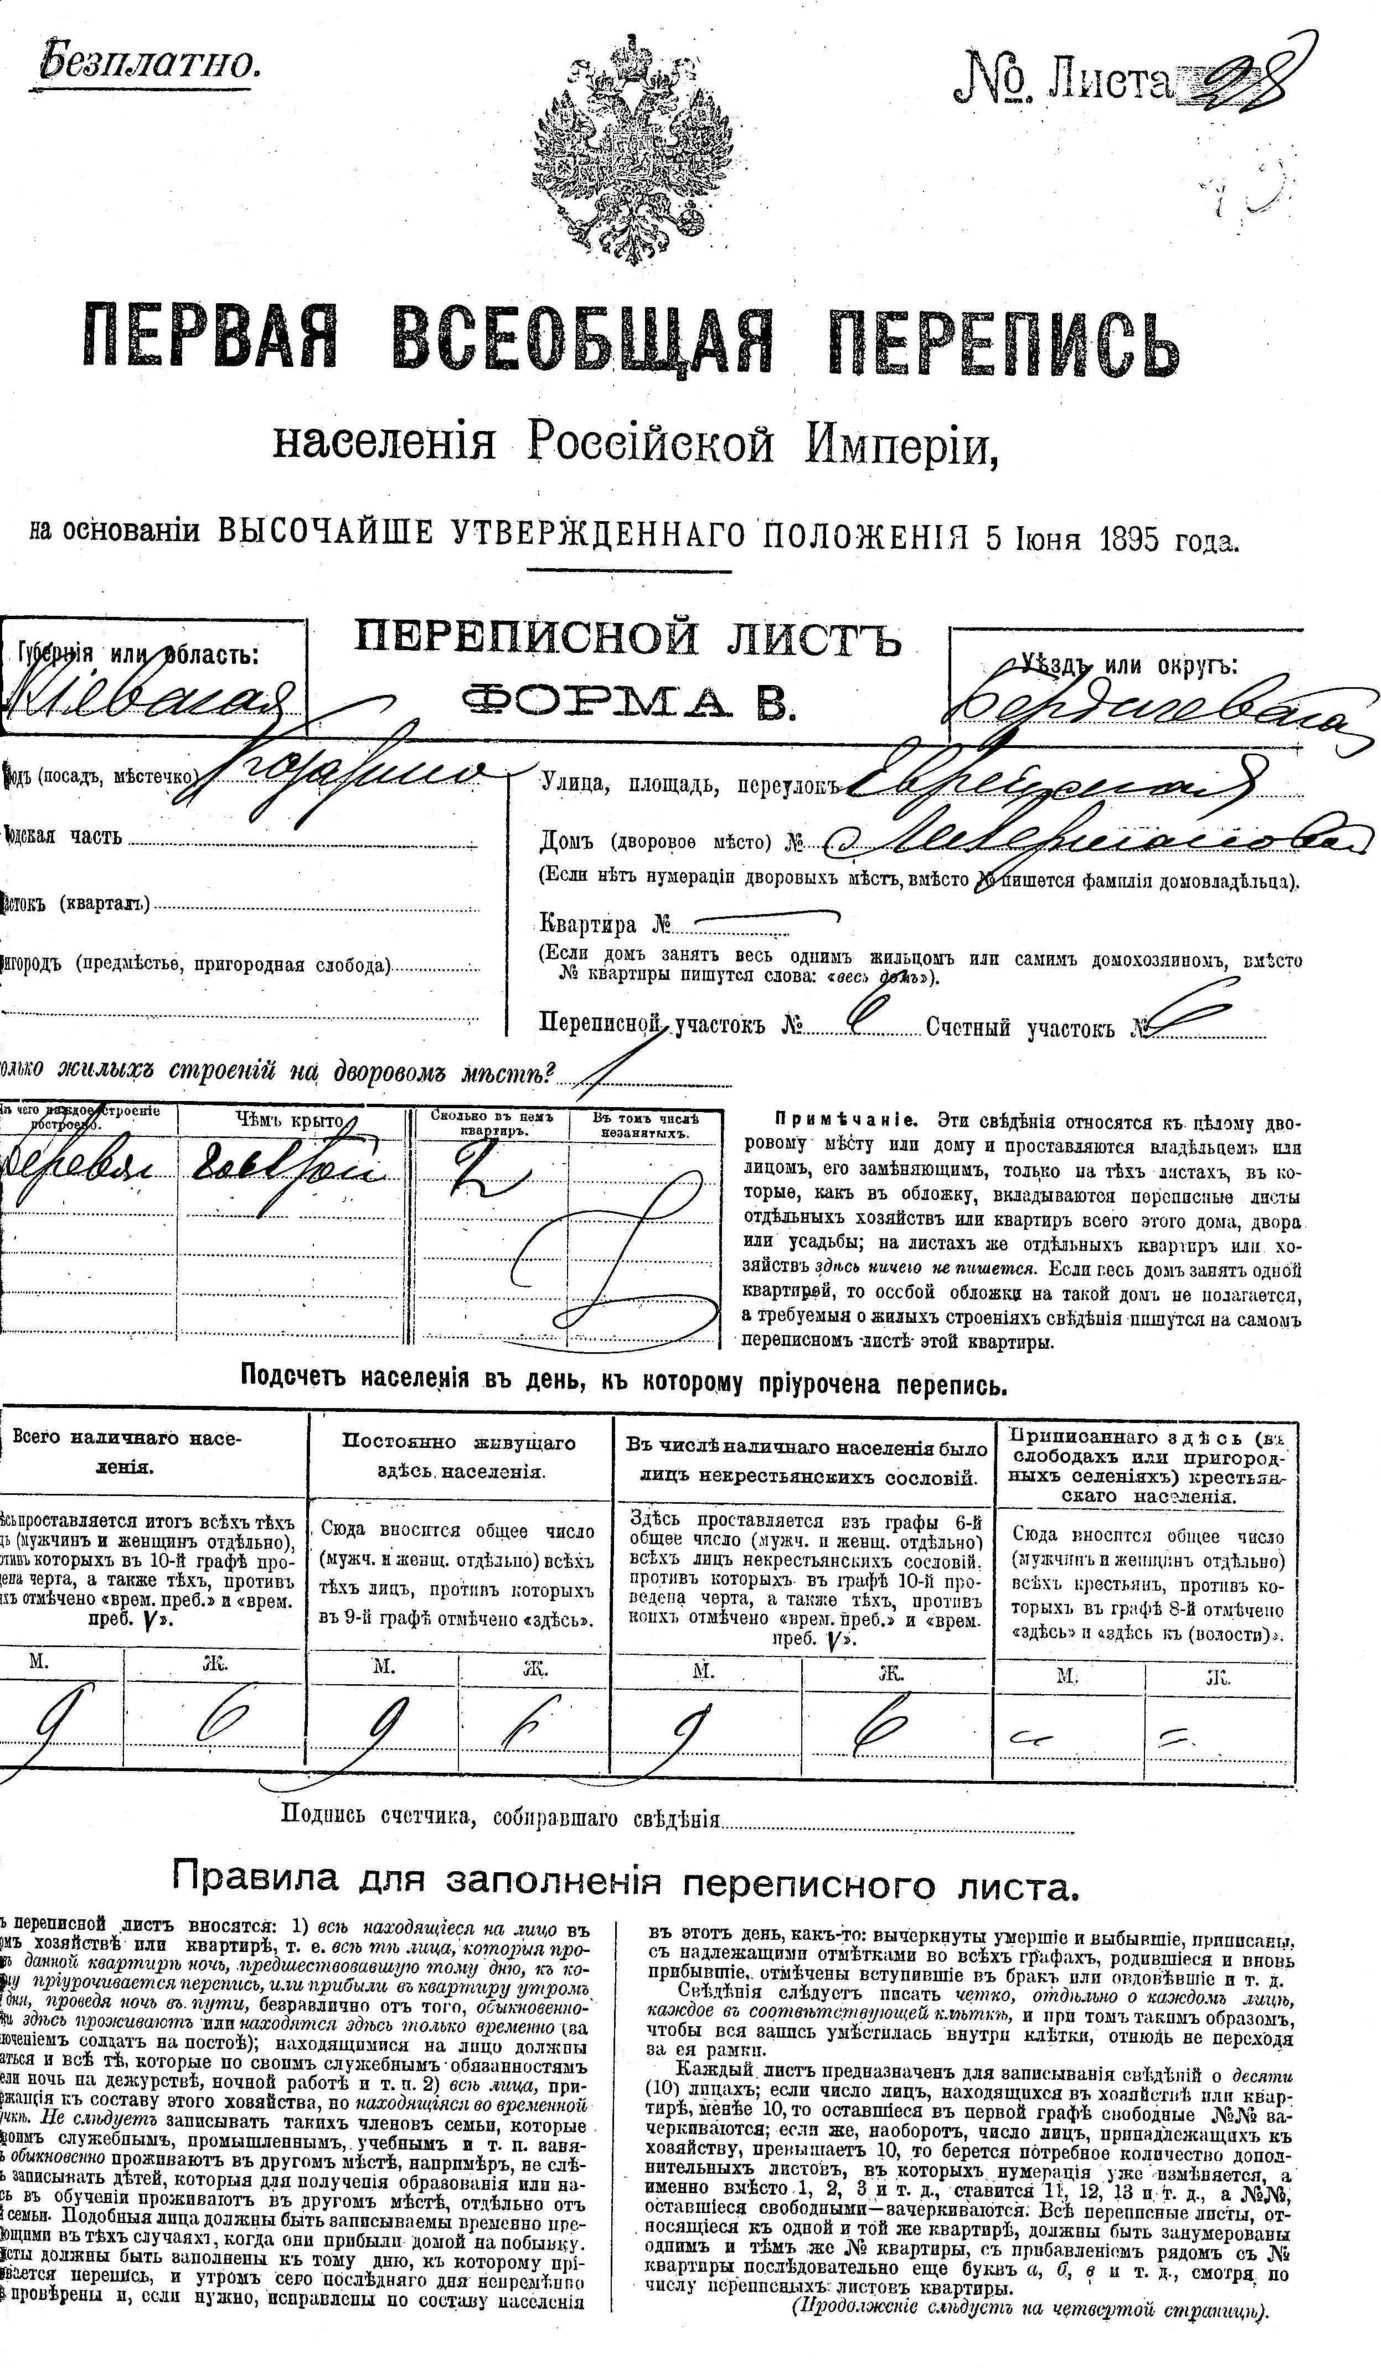 Безплатно.
№ Листа 28
ПЕРВАЯ ВСЕОБЩАЯ ПЕРЕПИСЬ
населенія Россійской Имперіи,
на основаніи ВЫСОЧАЙШЕ УТВЕРЖДЕННАГО ПОЛОЖЕНІЯ 5 Іюня 1895 года.
ПЕРЕПИСНОЙ ЛИСТЪ
ФОРМА В.
Губернія или область:
Кіевская
Уѣздъ или округъ:
Бердичевскаго
(посадъ, мѣстечко)
часть
(кварталъ)
(предмѣстье, пригородная слобода)
Улица, площадь, переулокъ Еврейская
Домъ (дворовое мѣсто) №
(Если нѣтъ нумераціи дворовыхъ мѣстъ, вмѣсто № пишется фамилія домовладѣльца).
Квартира №
(Если домъ занятъ весь однимъ жильцомъ или самимъ домохозяиномъ, вмѣсто
№ квартиры пишутся слова: «весь домъ»).
Переписной участокъ № 6 Счетный участокъ № 6
жилыхъ строеній на дворовомъ мѣстѣ? 1
чего каждое строеніе построено.
Чѣмъ крыто
Сколько въ немъ квартиръ.
Въ томъ числѣ незанятыхъ.
2
Примѣчаніе. Эти свѣдѣнія относятся къ цѣлому дво-
ровому мѣсту или дому и проставляются владѣльцемъ или
лицомъ, его замѣняющимъ, только на тѣхъ листахъ, въ ко-
торые, какъ въ обложку, вкладываются переписные листы
отдѣльныхъ хозяйствъ или квартиръ всего этого дома, двора
или усадьбы; на листахъ же отдѣльныхъ квартиръ или хо-
зяйствъ здѣсь ничего не пишется. Если весь домъ занятъ одной
квартирой, то особой обложки на такой домъ не полагается,
а требуемыя о жилыхъ строеніяхъ свѣдѣнія пишутся на самомъ
переписномъ листѣ этой квартиры.
Подсчетъ населенія въ день, къ которому пріурочена перепись.
Всего наличнаго насе-
ленія.
проставляется итогъ всѣхъ тѣхъ
(мужчинъ и женщинъ отдѣльно),
которыхъ въ 10-й графѣ про-
черта, а также тѣхъ, противъ
отмѣчено «врем. преб.» и «врем.
преб. V».
М. Ж.
9 6
Постоянно живущаго
здѣсь населенія.
Сюда вносится общее число
(мужч. и женщ. отдѣльно) всѣхъ
тѣхъ лицъ, противъ которыхъ
въ 9-й графѣ отмѣчено «здѣсь».
М. Ж.
9 6
Въ числѣ наличнаго населенія было
лицъ некрестьянскихъ сословій.
Здѣсь проставляется изъ графы 6-й
общее число (мужч. и женщ. отдѣльно)
всѣхъ лицъ некрестьянскихъ сословій,
противъ которыхъ въ графѣ 10-й про-
ведена черта, а также тѣхъ, противъ
коихъ отмѣчено «врем. преб.» и «врем.
преб. V».
М. Ж.
9 6
Приписаннаго здѣсь (въ
слободахъ или пригород-
ныхъ селеніяхъ) крестьян-
скаго населенія.
Сюда вносится общее число
(мужчинъ и женщинъ отдѣльно)
всѣхъ крестьянъ, противъ ко-
торыхъ въ графѣ 8-й отмѣчено
«здѣсь» и «здѣсь къ (волости)».
М. Ж.
Подпись счетчика, собиравшаго свѣдѣнія
Правила для заполненія переписного листа.
переписной листъ вносятся: 1) всѣ находящіеся на лицо въ
хозяйствѣ или квартирѣ, т. е. всѣ тѣ лица, которыя про-
данной квартирѣ ночь, предшествовавшую тому дню, къ ко-
пріурочивается перепись, или прибыли въ квартиру утромъ
дня, проведя ночь въ пути, безразлично отъ того, обыкновенно-
здѣсь проживаютъ или находятся здѣсь только временно (за
солдатъ на постоѣ); находящимися на лицо должны
и всѣ тѣ, которые по своимъ служебнымъ обязанностямъ
ночь на дежурствѣ, ночной работѣ и т. п. 2) всѣ лица, при-
къ составу этого хозяйства, но находящіяся во временной
Не слѣдуетъ записывать такихъ членовъ семьи, которые
служебнымъ, промышленнымъ, учебнымъ и т. п. заня-
обыкновенно проживаютъ въ другомъ мѣстѣ, напримѣръ, не слѣ-
записывать дѣтей, которыя для полученія образованія или на-
въ обученіи проживаютъ въ другомъ мѣстѣ, отдѣльно отъ
семьи. Подобныя лица должны быть записываемы временно пре-
въ тѣхъ случаяхъ, когда они прибыли домой на побывку.
должны быть заполнены къ тому дню, къ которому прі-
перепись, и утромъ сего послѣдняго дня непремѣнно
провѣрены и, если нужно, исправлены по составу населенія
въ этотъ день, какъ-то: вычеркнуты умершіе и выбывшіе, приписаны,
съ надлежащими отмѣтками во всѣхъ графахъ, родившіеся и вновь
прибывшіе, отмѣчены вступившіе въ бракъ или овдовѣвшіе и т. д.
Свѣдѣнія слѣдуетъ писать четко, отдѣльно о каждомъ лицѣ,
каждое въ соотвѣтствующей клѣткѣ, и при томъ такимъ образомъ,
чтобы вся запись умѣстилась внутри клѣтки, отнюдь не переходя
за ея рамки.
Каждый листъ предназначенъ для записыванія свѣдѣній о десяти
(10) лицахъ; если число лицъ, находящихся въ хозяйствѣ или квар-
тирѣ, менѣе 10, то оставшіеся въ первой графѣ свободные №№ за-
черкиваются; если же, наоборотъ, число лицъ, принадлежащихъ къ
хозяйству, превышаетъ 10, то берется потребное количество допол-
нительныхъ листовъ, въ которыхъ нумерація уже измѣняется, а
именно вмѣсто 1, 2, 3 и т. д., ставится 11, 12, 13 и т. д., а №№,
оставшіеся свободными—зачеркиваются. Всѣ переписные листы, от-
носящіеся къ одной и той же квартирѣ, должны быть занумерованы
однимъ и тѣмъ же № квартиры, съ прибавленіемъ рядомъ съ №
квартиры послѣдовательно еще буквъ а, б, в и т. д., смотря по
числу переписныхъ листовъ квартиры.
(Продолженіе слѣдуетъ на четвертой страницѣ).